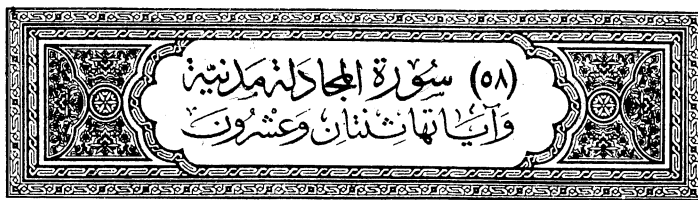 (٥٨) سُورَة المجَادلَة مَدنيَّة
وَآيَاتهَا ثنتَان وَعشْرُونَ